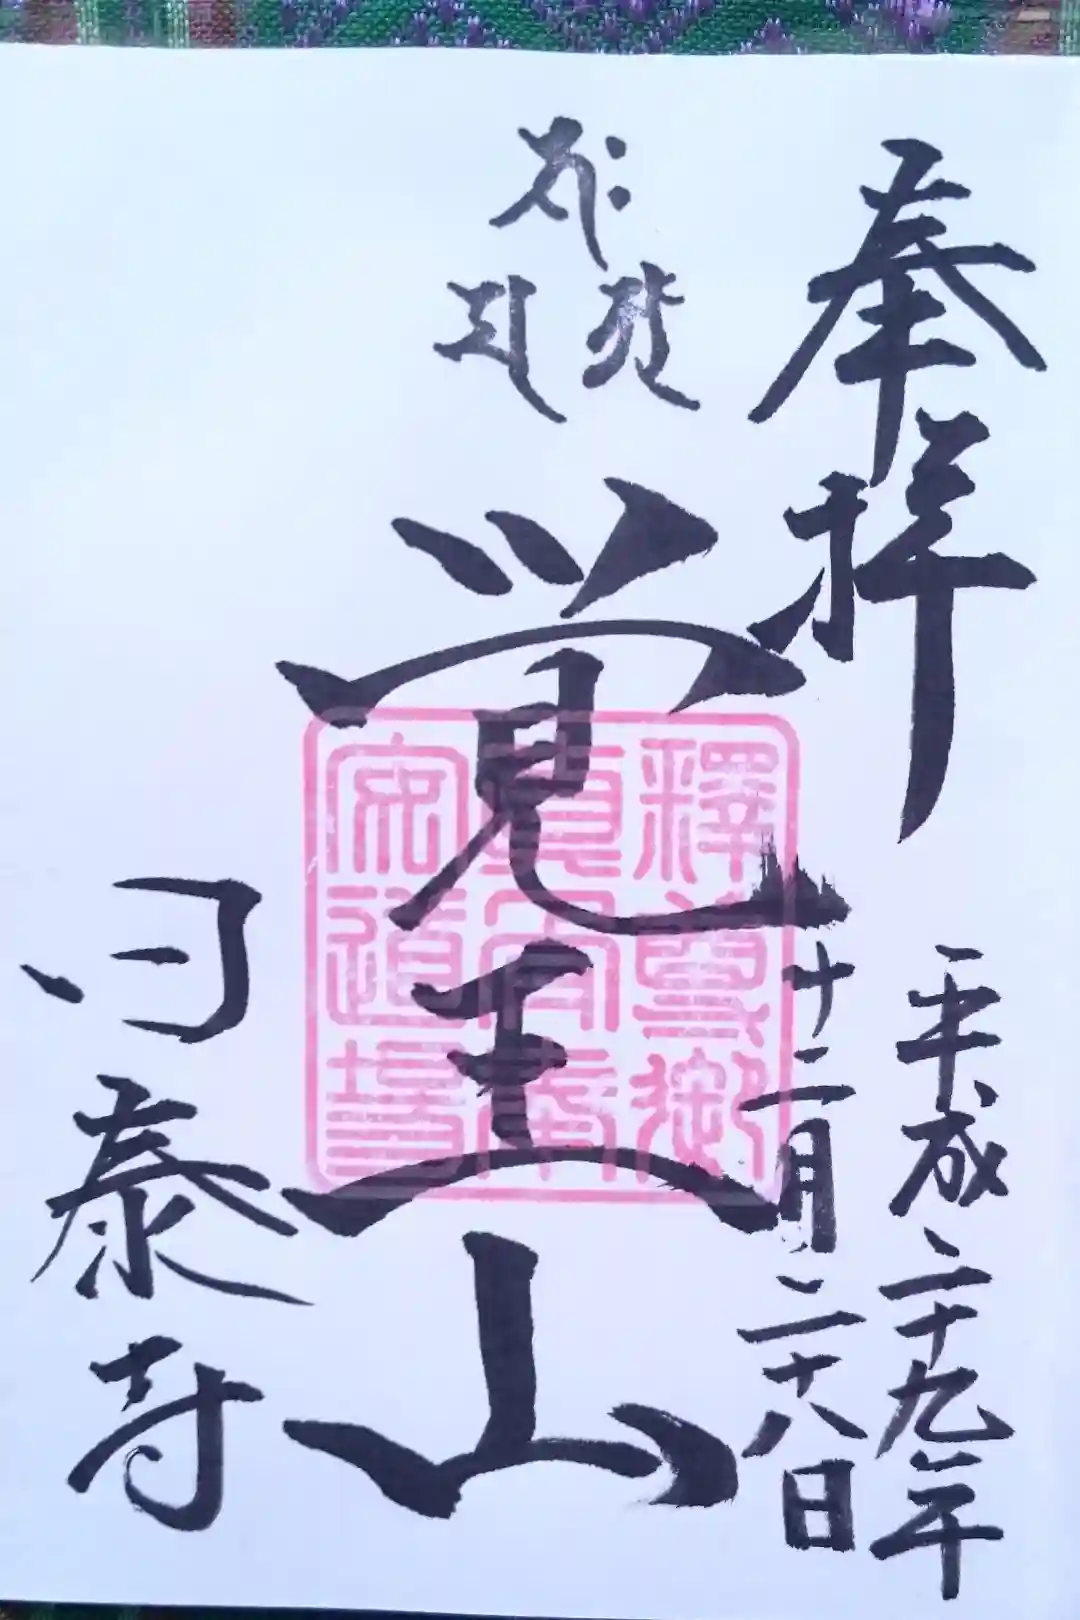 奉拝
平成二十九年
十二月二十八日
覚王山
釋尊御
真身奉
安道場
日泰寺